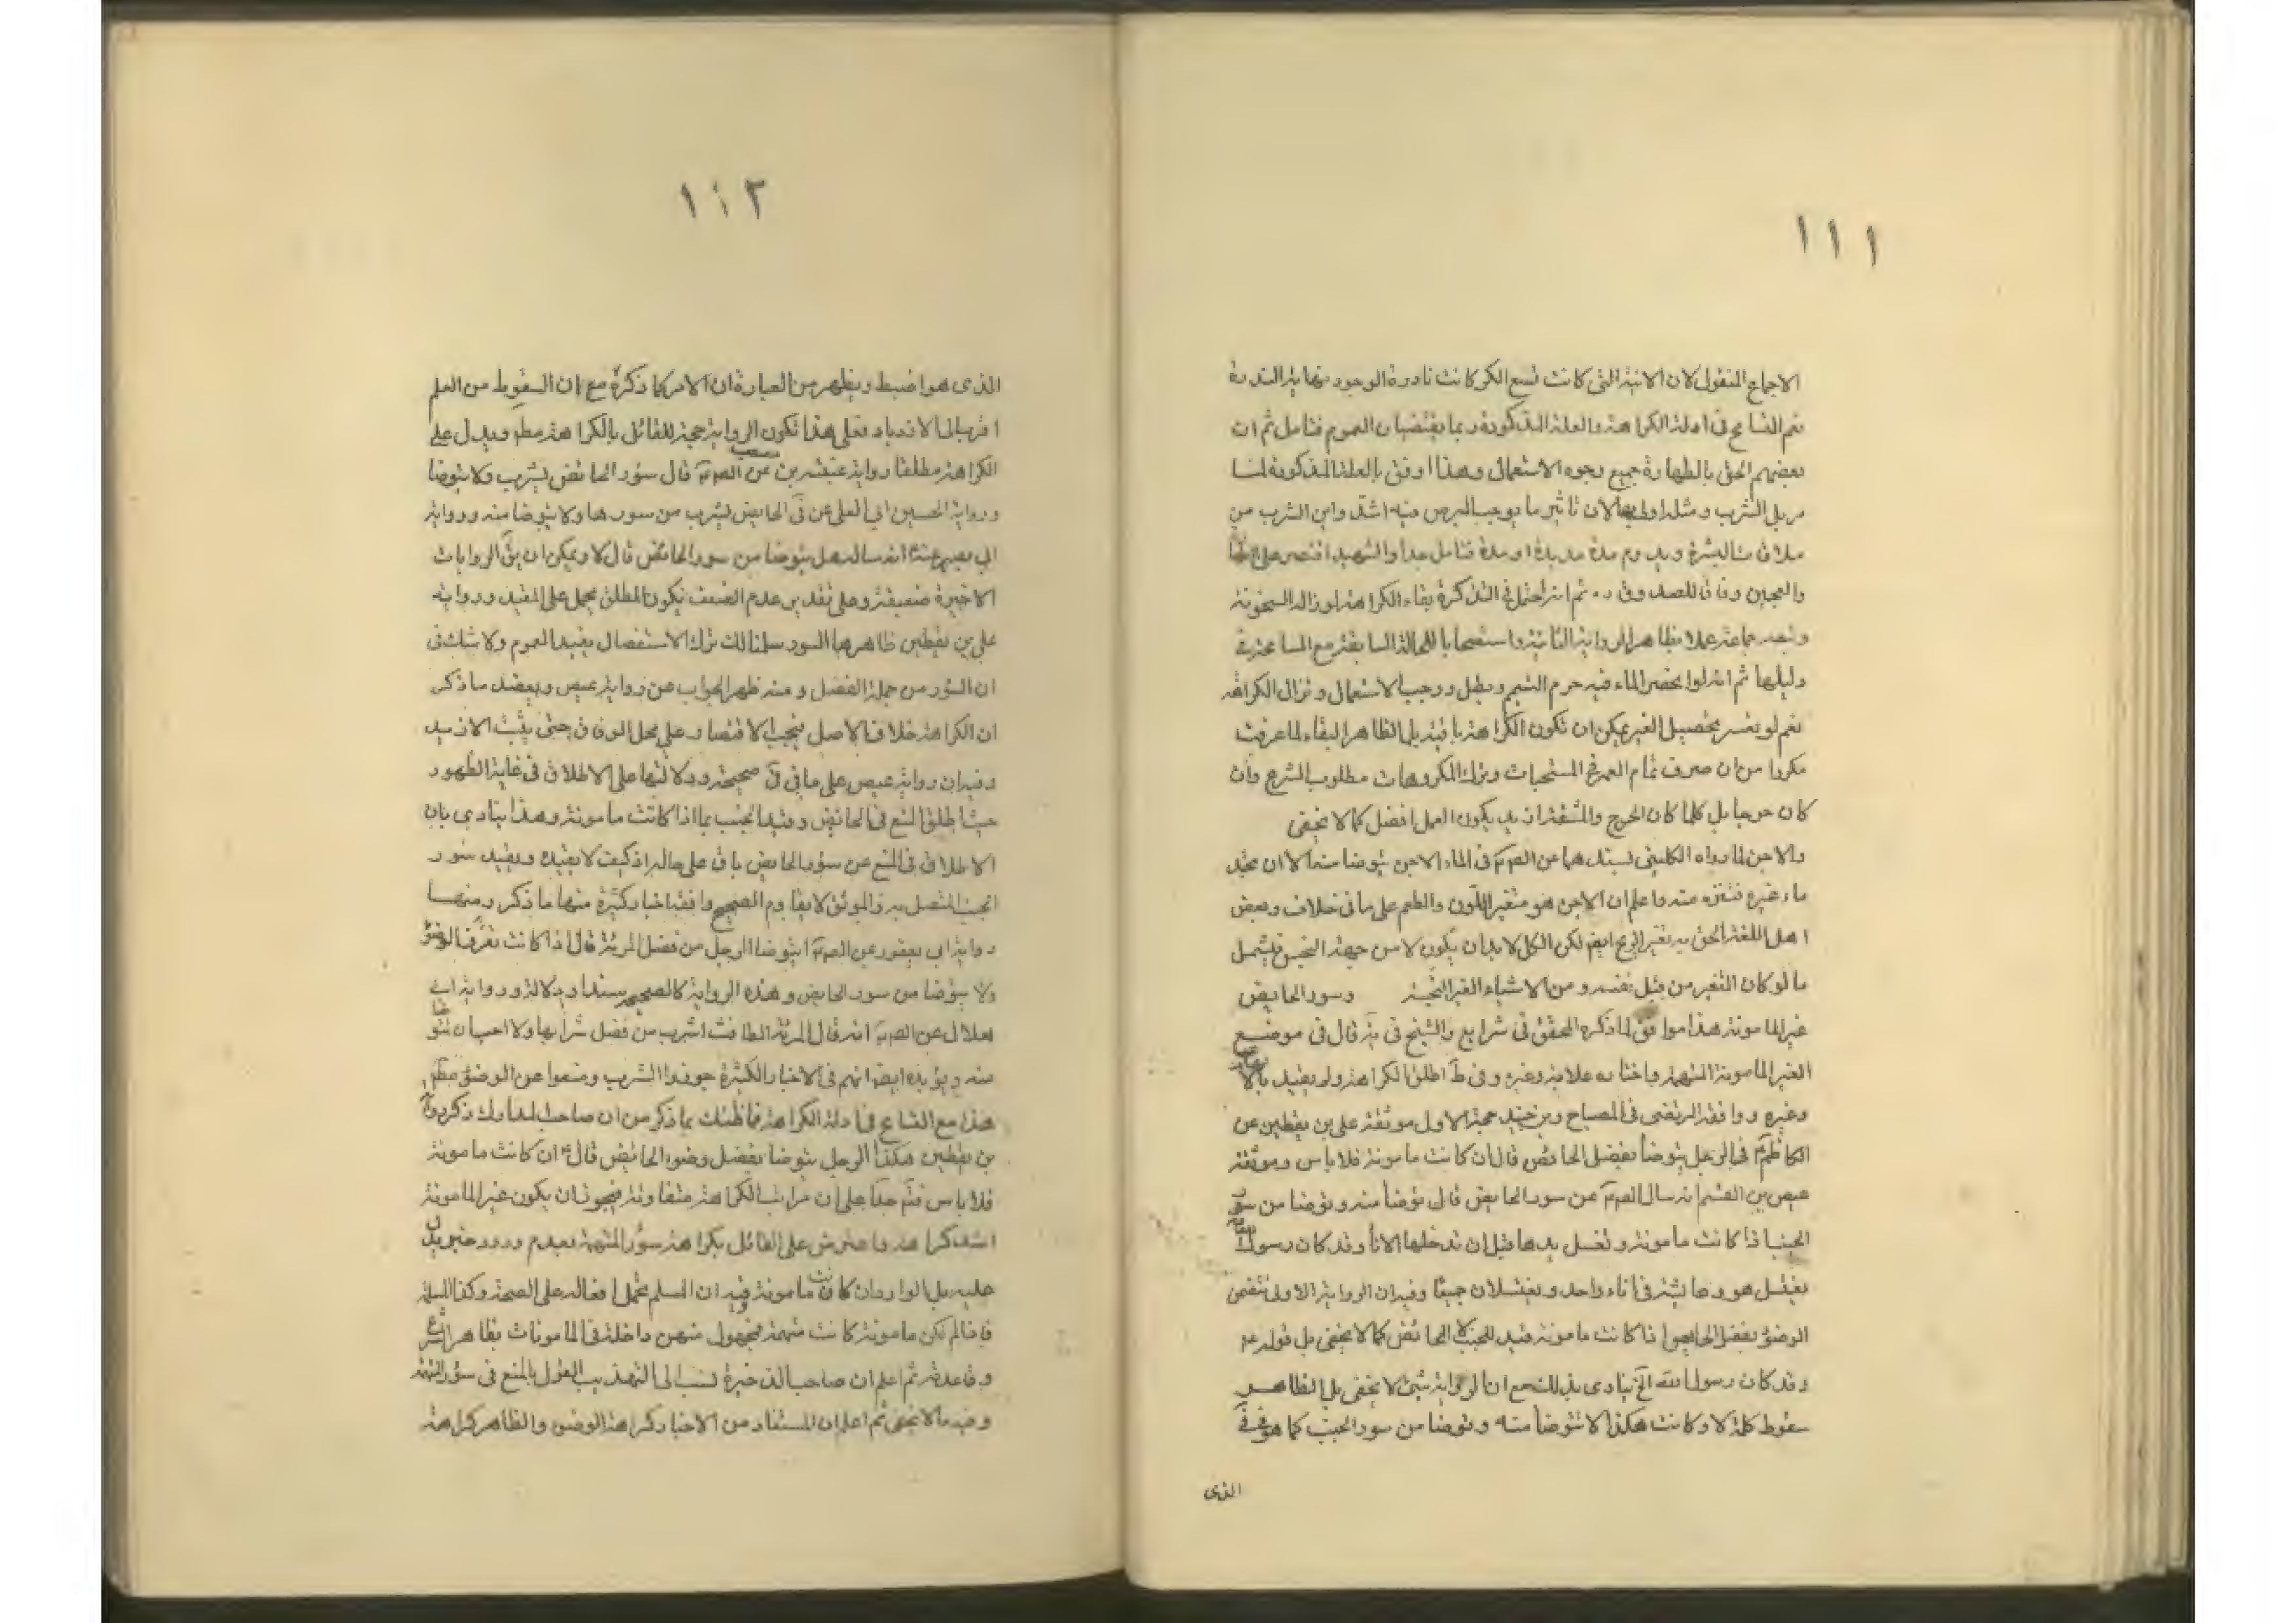 ١١١
الاجماع المنقول لان الانية التى كانت تسع الكر كانت نادرة الوجود نهاية الندرة
نعم التسامح فى ادلة الكراهة والعلة المذكورة ربما يقتضيان العموم فتامل ثم ان
بعضهم الحق بالطهارة جميع وجوه الاستعمال وهذا اوفق بالعلة المذكورة لنا
مر بل الشرب ومثله اولى بها لان تاثير ما يوجب البرص فيه اشد واين الشرب من
ملاقات البشرة ويدوم مدة مديدة او مدة فتامل جدا والشهيد اقتصر على
والعجين وفاقا للصدوق ره ثم انه احتمل فى التذكرة بقاء الكراهة لو زال السخونة
وتبعه جماعة عملا بظاهر الرواية الثانية واستصحابا للحالة السابقة مع المسامحة فى
دليلها ثم انه لو انحصر الماء فيه حرم التيمم وبطل ووجب الاستعمال وتزال الكراهة
نعم لو تعسر تحصيل الغير يمكن ان تكون الكراهة باقية بل الظاهر البقاء لما عرفت
مكررا من ان صرف تمام العمر فى المستحبات وترك المكروهات مطلوب الشرع وان
كان حرجا بل كلما كان الحرج والمشقة ازيد يكون العمل افضل كما لا يخفى
والاجن لما رواه الكلينى بسندهما عن الصم فى الماء الاجن يتوضا منه الا ان تجد
ماء غيره فتنزه منه واعلم ان الاجن هو متغير اللون والطعم على ما فى خلاف وبعض
اهل اللغة الحق به تغير الريح ايض لكن الكل لابد ان يكون لا من جهة النجس فيشمل
ما لو كان التغير من قبل نفسه ومن الاشياء الغير النجسة وسور الحايض
غير المامونة هذا موافق لما ذكره المحقق فى شرايع والشيخ فى ية قال فى موضع
الغير المامونة المتهمة واختاره علامة وغيره وفى ط اطلق الكراهة ولم يقيد
وغيره ووافقه المرتضى فى المصباح وبن جنيد حجة الاول موثقة على بن يقطين عن
الكاظم فى الرجل يتوضا بفضل الحائض قال ان كانت مامونة فلا باس وموثقة
عيص بن القسم انه سال الصم عن سور الحايض قال توضا منه وتوضا من سور
الجنب اذا كانت مامونة وتغسل يدها قبل ان تدخلها الاناء وقد كان رسول الله
يغتسل هو وعايشة فى اناء واحد ويغتسلان جميعا وفيه ان الرواية الاولى تتضمن
الوضوء بفضل الحايض اذا كانت مامونة قيد للجنب لا الحائض كما لا يخفى بل قوله
وقد كان رسول الله الخ ينادى بذلك مع ان الرواية شئ لا يخفى بل الظاهر
سقوط كلمة لا وكانت هكذا لا تتوضا منه وتوضا من سور الجنب كما هو فى
الذى
١١٢
الذى هو اضبط ويظهر من العبارة ان الامر كما ذكره مع ان السقوط من القلم
اقرب الى الازدياد فعلى هذا تكون الرواية حجة للقائل بالكراهة مطم ويدل على
الكراهة مطلقا رواية عنبسة بن مصعب عن الصم قال سؤر الحائض يشرب ولا يتوضا
ورواية الحسين ابى العلى عن فى الحايض يشرب من سورها ولا يتوضا منه ورواية
ابى بصير عنه انه ساله هل يتوضا من سور الحائض قال لا ويمكن ان يق الروايات
الاخيرة ضعيفة وعلى تقدير عدم الضعف يكون المطلق يحمل على المقيد ورواية
على بن يقطين ظاهرها السور سلمنا لكن ترك الاستفصال يفيد العموم ولا شك فى
ان السؤر من جملة الفضل ومنه ظهر الجواب عن رواية عيص ويعضد ما ذكر
ان الكراهة خلاف الاصل فيجب الاقتصار على محل الوفاق حتى يثبت الازيد
وفيه ان رواية عيص على ما فى فى صحيحة ودلالتها على الاطلاق فى غاية الظهور
حيث اطلق المنع فى الحائض وقيد الجنب بما اذا كانت مامونة وهذا ينادى بان
الاطلاق فى المنع عن سؤر الحايض باق على حاله اذ كيف لا يقيده ويقيد سور
الجنب المتصل به والموثق لايقاوم الصحيح وافقه اخبار كثيرة منها ما ذكر ومنها
رواية ابى يعفور عن الصم ايتوضا الرجل من فضل المرئة قال اذا كانت تعرف الوضوء
ولا يتوضا من سور الحايض وهذه الرواية كالصحيح سندا ودلالة ورواية ابى
هلال عن الصم انه قال المرئة الطامث اشرب من فضل شرابها ولا احب ان تتوضا
منه ويؤيده ايض انهم فى الاخبار الكثيرة جوزوا الشرب ومنعوا عن الوضوء مطم
هذا مع التسامح فى ادلة الكراهة فما ظنك بما ذكر من ان صاحب المدارك ذكر رواية
بن يقطين هكذا الرجل يتوضا بفضل وضوء الحائض قال ان كانت مامونة
فلا باس فتم جدا على ان مراتب الكراهة متفاوتة فيجوز ان يكون غير المامونة
اشد كراهة واعترض على القائل بكراهة سؤر المتهمة بعدم ورود خبر يدل
عليه بل الوارد ان كانت مامونة وفيه ان المسلم يحمل افعاله على الصحة وكذا المسلمة
فاذا لم تكن مامونة كانت متهمة فمجهول منهن داخلة فى المامونات بظاهر الشرع
وقاعدته ثم اعلم ان صاحب الذخيرة نسب الى التهذيب القول بالمنع فى سؤر المتهمة
وفيه ما لا يخفى ثم اعلم ان المستفاد من الاخبار كراهة الوضوء والظاهر كراهة